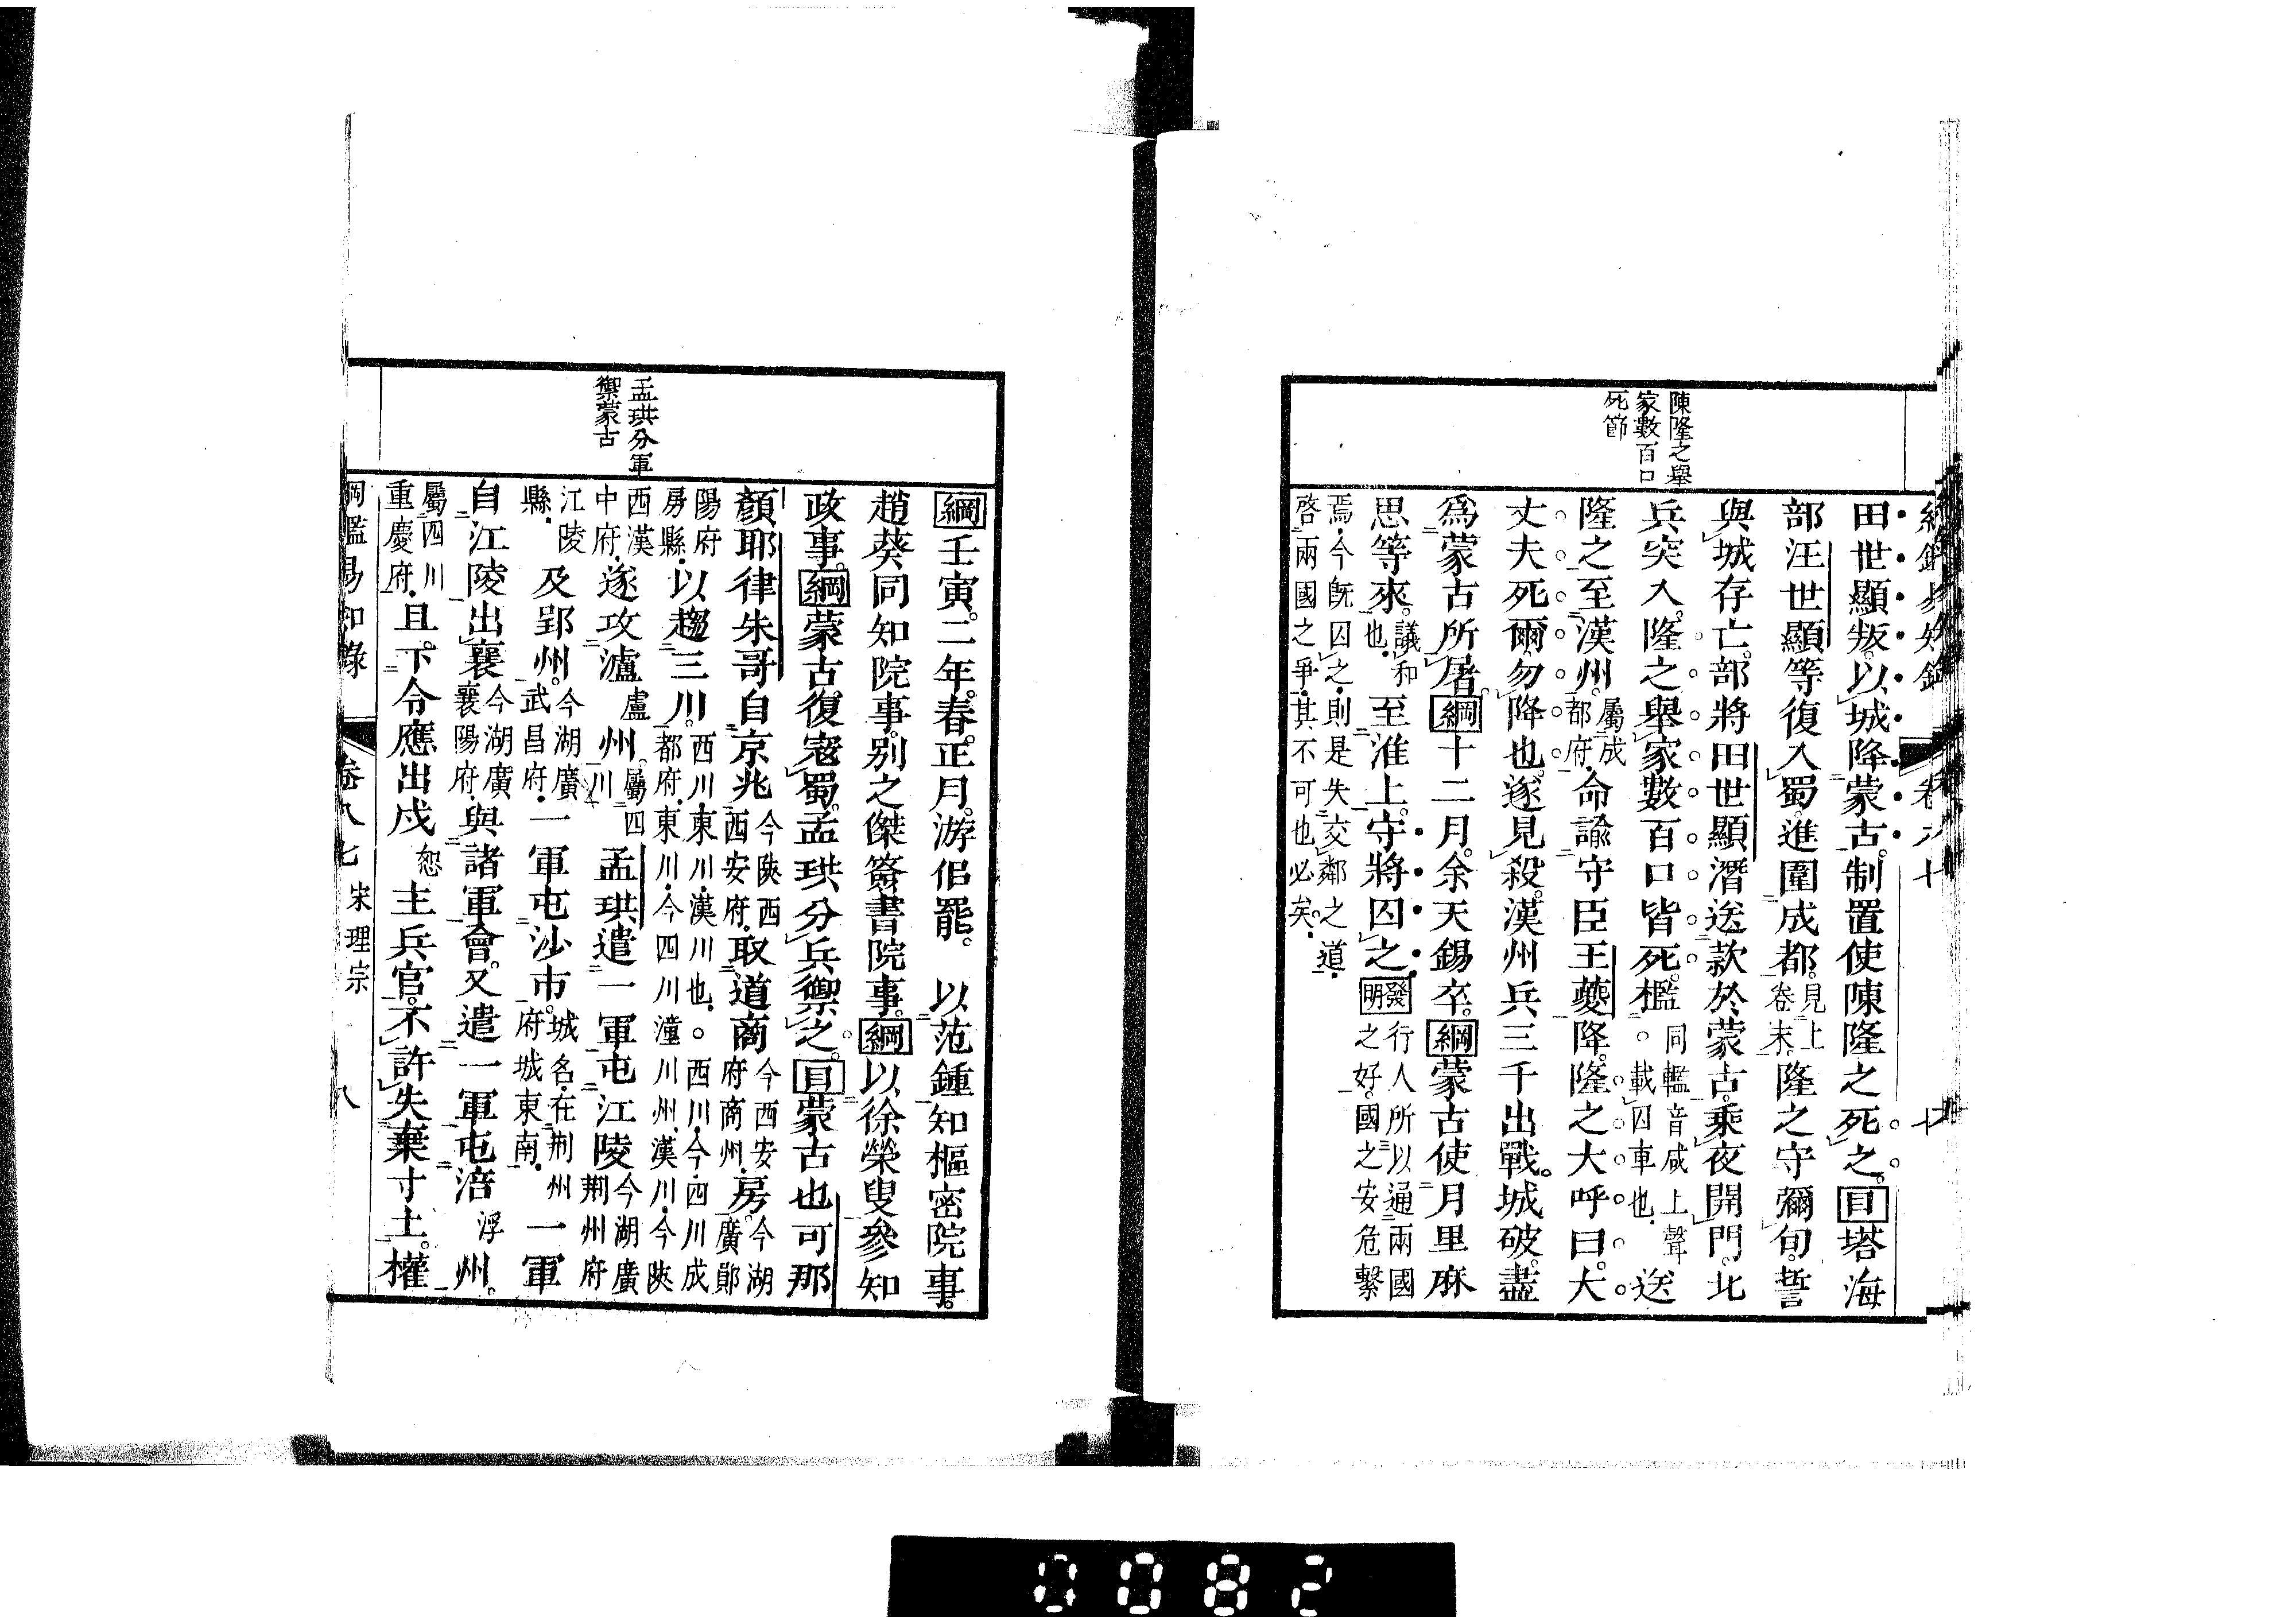 陳隆之舉
家數百口
死節
田世顯叛。以城降蒙古。制置使陳隆之死之。目塔海
部汪世顯等復入蜀。進圍成都。見上卷末。隆之守彌旬。誓
與城存亡。部將田世顯潛送款於蒙古。乘夜開門。北
兵突入。隆之舉家數百口皆死。檻同轞音咸上聲。載囚車也。送
隆之至漢州。屬成都府。命諭守臣王夔降。隆之大呼曰。大
丈夫死爾。勿降也。遂見殺。漢州兵三千出戰。城破。盡
爲蒙古所屠。綱十二月。余天錫卒。綱蒙古使月里麻
思等來。議和也。至淮上。守將囚之。發明行人所以通兩國之好。國之安危繫
焉。今既囚之。則是失交鄰之道。啓兩國之爭。其不可也必矣。
孟珙分軍
禦蒙古
綱壬寅。二年。春。正月。游侣罷。 以范鍾知樞密院事。
趙葵同知院事。別之傑簽書院事。綱以徐榮叟參知
政事。綱蒙古復寇蜀。孟珙分兵禦之。目蒙古也可那
顏耶律朱哥自京兆今陝西西安府。取道商今西安府商州。房。今湖廣鄖
陽府房縣。以趨三川。西川東川漢川也。○西川。今四川成都府。東川。今四川潼川州。漢川。今陝
西漢中府。遂攻瀘盧州。屬四川 孟珙遣一軍屯江陵今湖廣荆州府
江陵縣。及郢州。今湖廣武昌府。一軍屯沙市。城名。在荆州府城東南。一軍
自江陵出襄今湖廣襄陽府。與諸軍會。又遣一軍屯涪浮州。
屬四川重慶府。且下令應出戍恕主兵官。不許失棄寸土。權
綱鑑易知錄 卷八七 宋理宗 八
0082